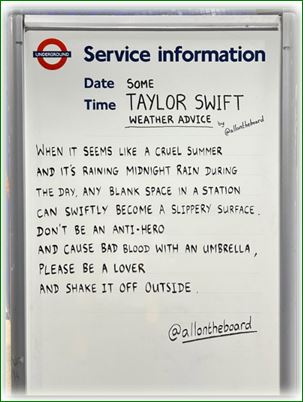 UNDERGROUND
Service information
Date SOME
Time TAYLOR SWIFT
WEATHER ADVICE by @allontheboard
WHEN IT SEEMS LIKE A CRUEL SUMMER
AND IT'S RAINING MIDNIGHT RAIN DURING
THE DAY, ANY BLANK SPACE IN A STATION
CAN SWIFTLY BECOME A SLIPPERY SURFACE.
DON'T BE AN ANTI-HERO
AND CAUSE BAD BLOOD WITH AN UMBRELLA,
PLEASE BE A LOVER
AND SHAKE IT OFF OUTSIDE.
@allontheboard